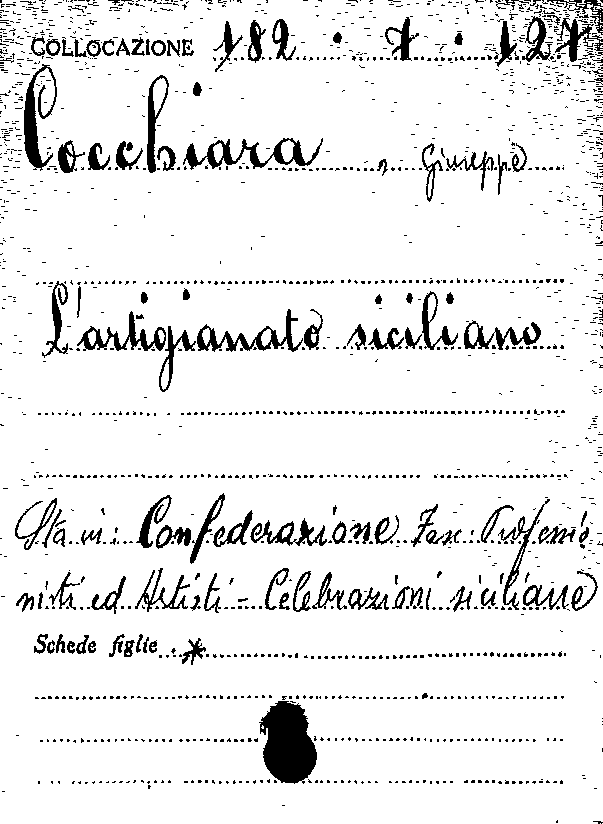 COLLOCAZIONE 182 . 7 . 127
Cocchiara , Giuseppe
L'artigianato siciliano
Sta in: Confederazione Fasc. Professio
nisti ed Artisti - Celebrazioni siciliane
Schede figlie . *